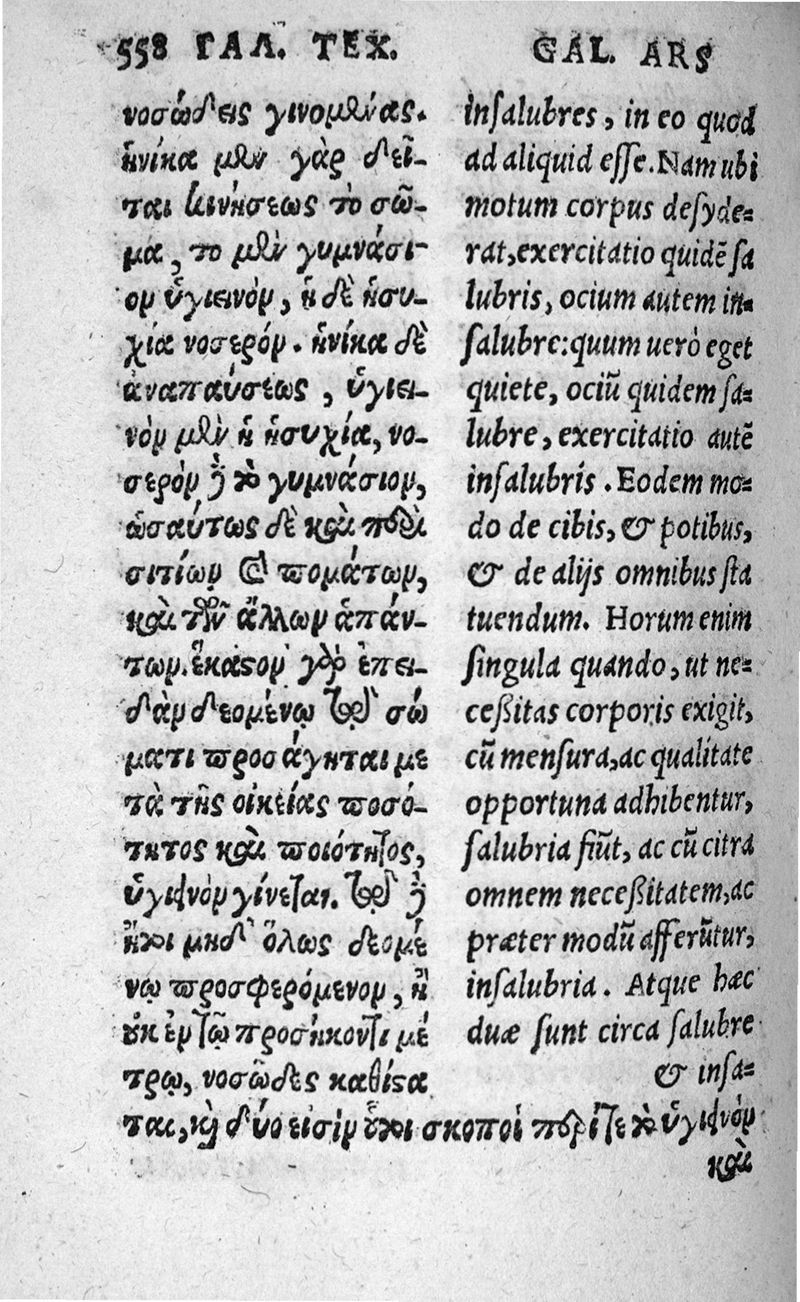 558 ΓΑΛ. ΤΕΧ.
νοσώδεις γινομένας.
ἡνίκα μὲν γὰρ δεῖ-
ται κινήσεως τὸ σῶ-
μα, το μὲν γυμνάσι-
ον ὑγιεινὸν, ἡ δὲ ἡσυ-
χία νοσερόν. ἡνίκα δὲ
ἀναπαύσεως, ὑγιει-
νὸν μὲν ἡ ἡσυχία, νο-
σερὸν δὲ τὸ γυμνάσιον,
ὡσαύτως δὲ καὶ περὶ
σιτίων καὶ πομάτων,
καὶ τῶν ἄλλων ἁπάν-
των. ἕκαστον γὰρ ἐπει-
δὰν δεομένῳ τῷ σώ
ματι προσάγηται με
τὰ τῆς οἰκείας ποσό-
τητος καὶ ποιότητος,
ὑγιεινὸν γίνεται. τῷ δὲ
ἤτοι μηδ' ὅλως δεομέ
νῳ προσφερόμενον, ἢ
οὐκ ἐν τῷ προσήκοντι μέ
τρῳ, νοσῶδες καθίστα
ται, καὶ δύο εἰσὶν οὗτοι σκοποὶ περί τε τὸ ὑγιεινὸν
καὶ
GAL. ARS
insalubres, in eo quod
ad aliquid esse. Nam ubi
motum corpus desyde=
rat, exercitatio quidē sa
lubris, ocium autem in=
salubre: quum uerò eget
quiete, ociũ quidem sa=
lubre, exercitatio autē
insalubris. Eodem mo=
do de cibis, & potibus,
& de alijs omnibus sta
tuendum. Horum enim
singula quando, ut ne=
ceßitas corporis exigit,
cũ mensura, ac qualitate
opportuna adhibentur,
salubria fiũt, ac cũ citra
omnem neceßitatem, ac
præter modũ afferũtur,
insalubria. Atque hæc
duæ sunt circa salubre
& insa=